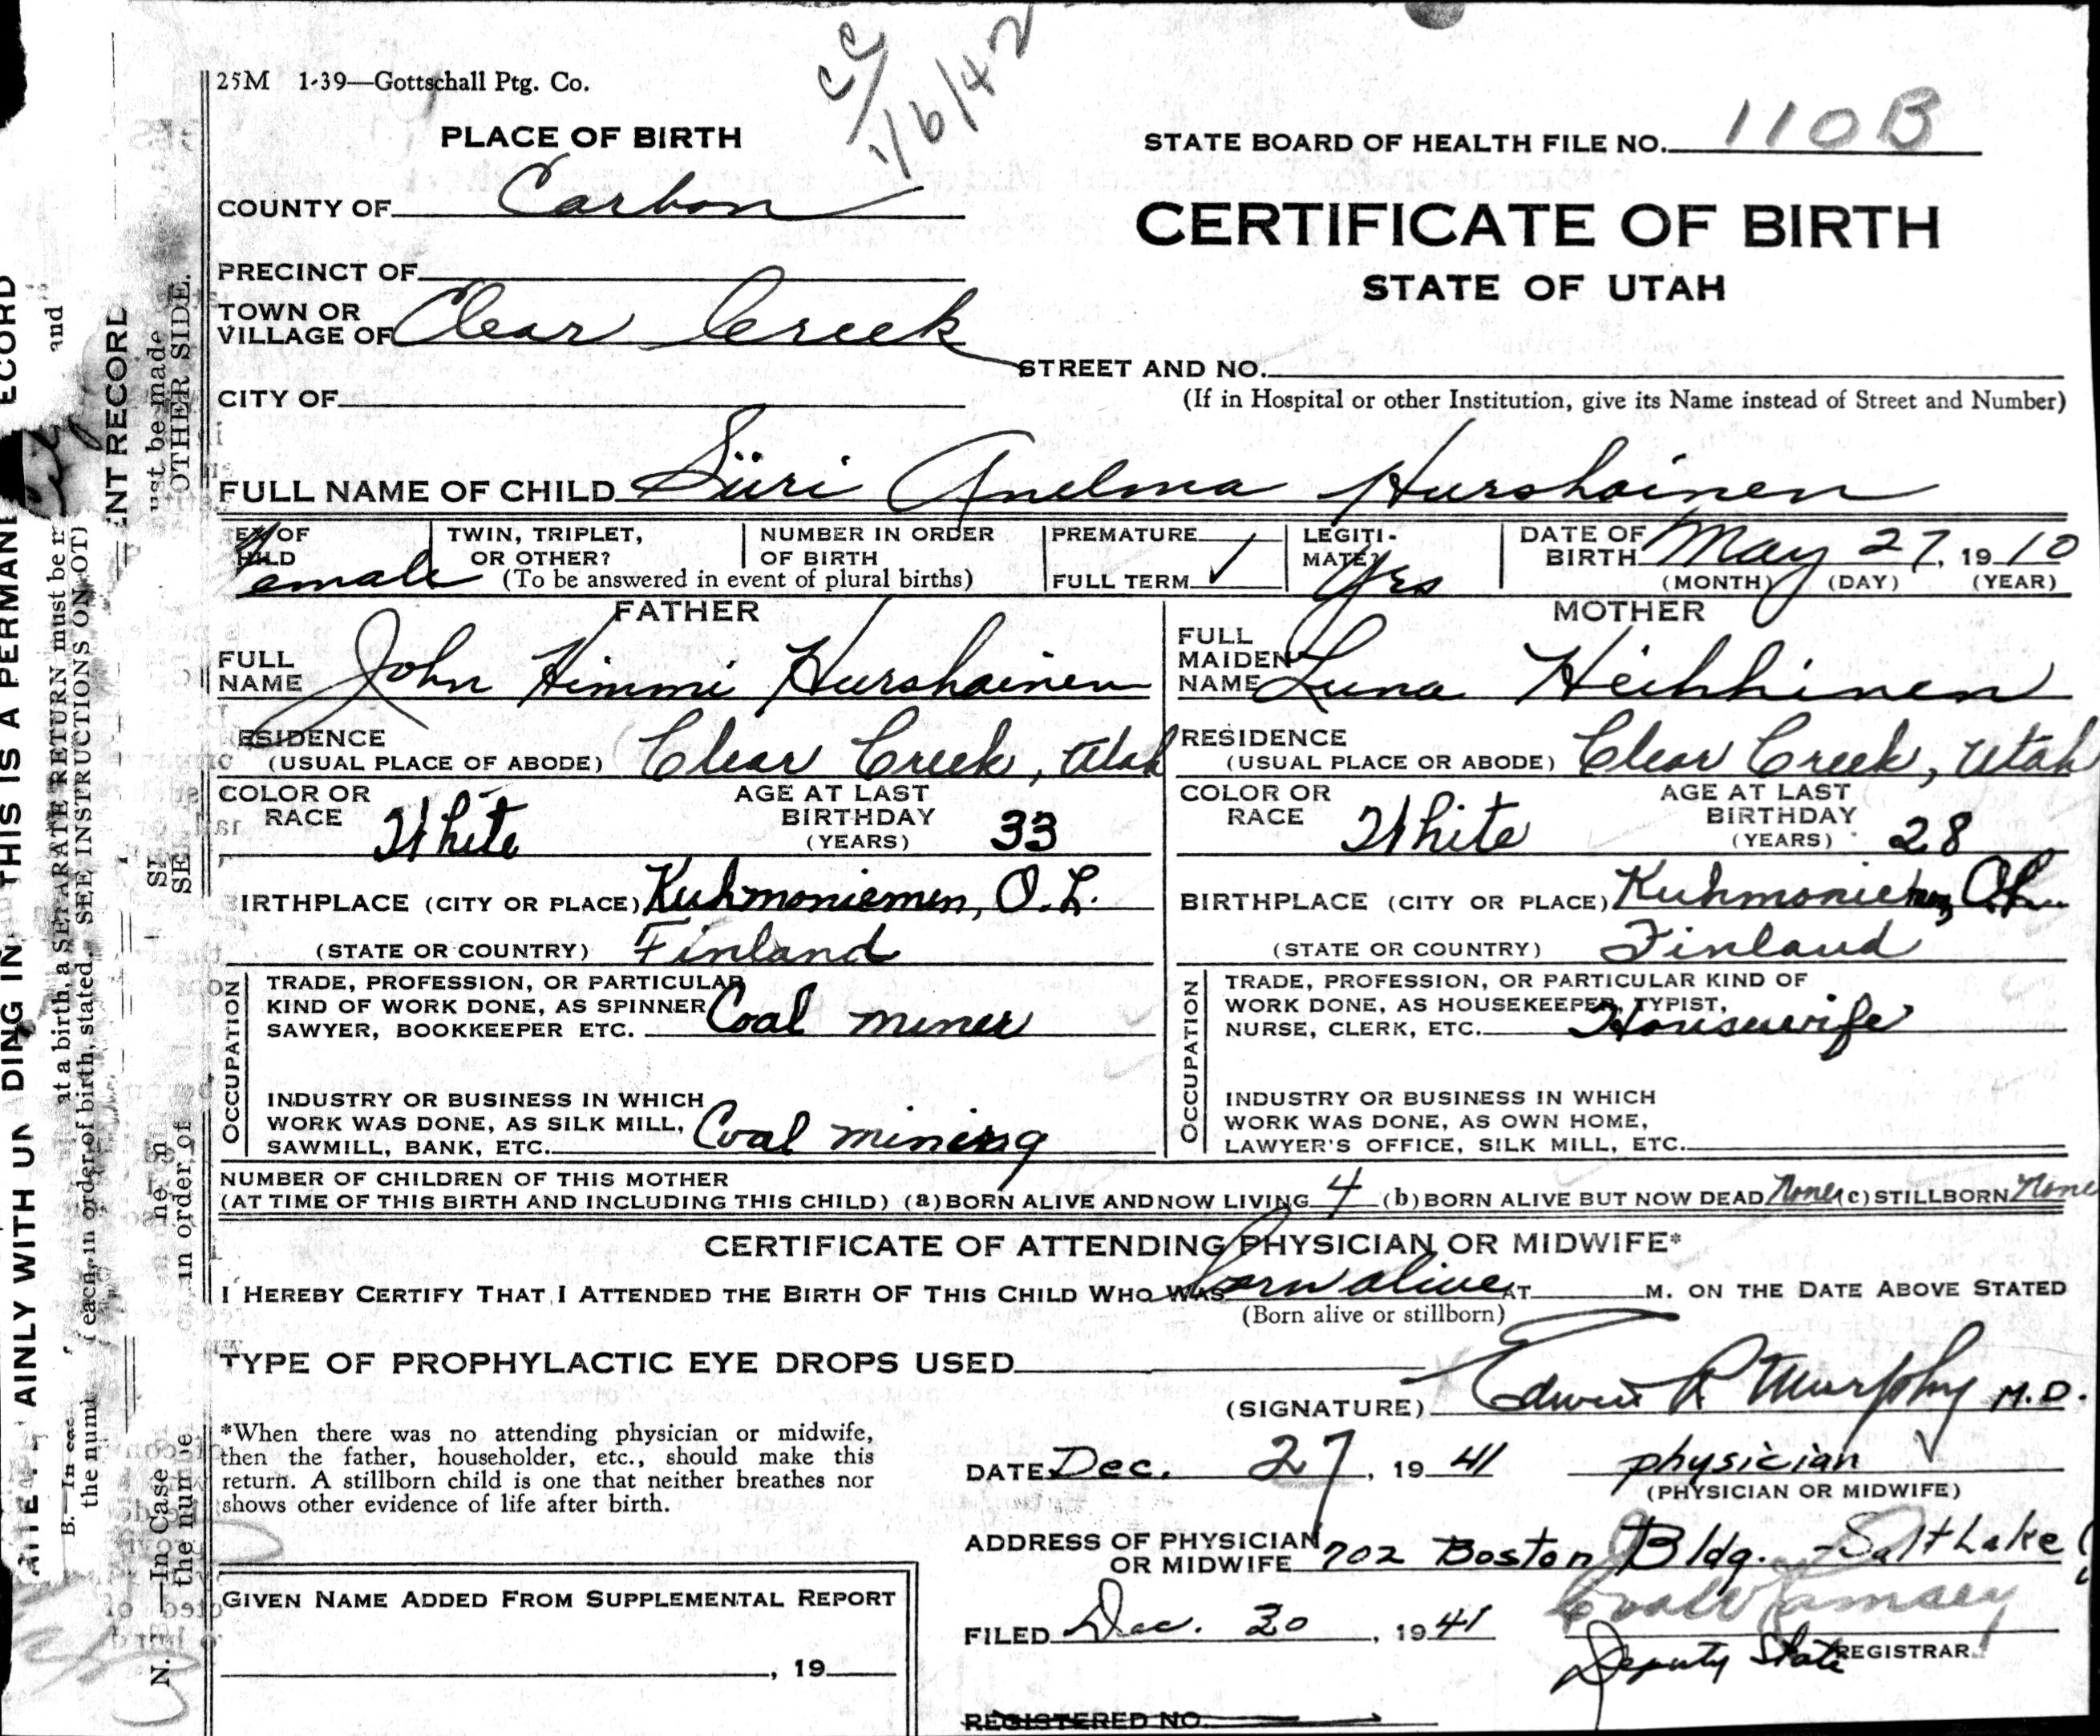 CC
1/6/42
25M 1-39—Gottschall Ptg. Co.
PLACE OF BIRTH
STATE BOARD OF HEALTH FILE NO. 110B
COUNTY OF Carbon
CERTIFICATE OF BIRTH
STATE OF UTAH
PRECINCT OF
TOWN OR
VILLAGE OF Clear Creek
STREET AND NO.
(If in Hospital or other Institution, give its Name instead of Street and Number)
CITY OF
FULL NAME OF CHILD Siiri Anelma Hurskainen
EX OF
HILD
Female
TWIN, TRIPLET,
OR OTHER?
(To be answered in event of plural births)
NUMBER IN ORDER
OF BIRTH
PREMATURE
FULL TERM ✓
LEGITI-
MATE? Yes
DATE OF
BIRTH May 27, 1910
(MONTH) (DAY) (YEAR)
FATHER
FULL
NAME John Himmi Hurskainen
ESIDENCE
(USUAL PLACE OF ABODE) Clear Creek, Utah
COLOR OR
RACE White
AGE AT LAST
BIRTHDAY
(YEARS) 33
IRTHPLACE (CITY OR PLACE) Kuhmoniemen, O.L.
(STATE OR COUNTRY) Finland
OCCUPATION
TRADE, PROFESSION, OR PARTICULAR
KIND OF WORK DONE, AS SPINNER
SAWYER, BOOKKEEPER ETC. Coal miner
INDUSTRY OR BUSINESS IN WHICH
WORK WAS DONE, AS SILK MILL,
SAWMILL, BANK, ETC. Coal mining
MOTHER
FULL
MAIDEN
NAME Luna Heikkinen
RESIDENCE
(USUAL PLACE OR ABODE) Clear Creek, Utah
COLOR OR
RACE White
AGE AT LAST
BIRTHDAY
(YEARS) 28
BIRTHPLACE (CITY OR PLACE) Kuhmoniemen, O.L.
(STATE OR COUNTRY) Finland
OCCUPATION
TRADE, PROFESSION, OR PARTICULAR KIND OF
WORK DONE, AS HOUSEKEEPER, TYPIST,
NURSE, CLERK, ETC. Housewife
INDUSTRY OR BUSINESS IN WHICH
WORK WAS DONE, AS OWN HOME,
LAWYER'S OFFICE, SILK MILL, ETC.
NUMBER OF CHILDREN OF THIS MOTHER
(AT TIME OF THIS BIRTH AND INCLUDING THIS CHILD) (a) BORN ALIVE AND NOW LIVING 4 (b) BORN ALIVE BUT NOW DEAD None (c) STILLBORN None
CERTIFICATE OF ATTENDING PHYSICIAN OR MIDWIFE*
I HEREBY CERTIFY THAT I ATTENDED THE BIRTH OF THIS CHILD WHO WAS born alive AT M. ON THE DATE ABOVE STATED
(Born alive or stillborn)
TYPE OF PROPHYLACTIC EYE DROPS USED
(SIGNATURE) Edwin R Murphy M.D.
*When there was no attending physician or midwife,
then the father, householder, etc., should make this
return. A stillborn child is one that neither breathes nor
shows other evidence of life after birth.
DATE Dec. 27, 1941 physician
(PHYSICIAN OR MIDWIFE)
ADDRESS OF PHYSICIAN
OR MIDWIFE 702 Boston Bldg. - Salt Lake
GIVEN NAME ADDED FROM SUPPLEMENTAL REPORT
, 19
FILED Dec. 30, 1941
Ramsey
Deputy State REGISTRAR.
REGISTERED NO.